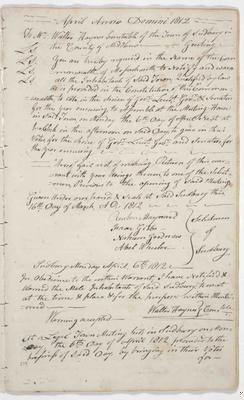 April Anno Domini 1812
To Mr. Walter Haynes Constable of the Town of Sudbury in
the County of Middlesex Greeting
You are hereby required in the Name of the Com
monwealth of Massachusetts to Notify and warn
all the Inhabitants of Said Town Qualified by law
as is provided in the Constitution of this Common
wealth to Vote in the choice of Govr. Lieut. Govr. & Senators
for the year ensuing to assemble at the Meeting House
in Said Town on Monday the 6th Day of April next at
o'Clock in the afternoon on Said Day to give in their
votes for the choice of Govr. Lieut. Govr. and Senators for
the year ensuing
Hereof fail not of making Return of this war
rant with your doings thereon to one of the Select
men Previous to the opening of Said Meeting
Given Under our hands & Seals at Said Sudbury this
16th Day of March A.D. 1812
Hayward
Selectmen
Isaac Gibbs
of
Nahum Goodnow
Abel Wheeler
Sudbury
Sudbury Monday April 6th 1812
In Obedience to the within Warrant I have Notified &
Warned the Male Inhabitants of Said Sudbury to meet
at the time & place & for the purpose within Menti
oned
Walter Haynes Const
Warning accepted
At a Legal Town Meeting held in Sudbury on Mon
day the 6th Day of April 1812 proceeded to the
purpose of Said Day by bringing in their Votes
for